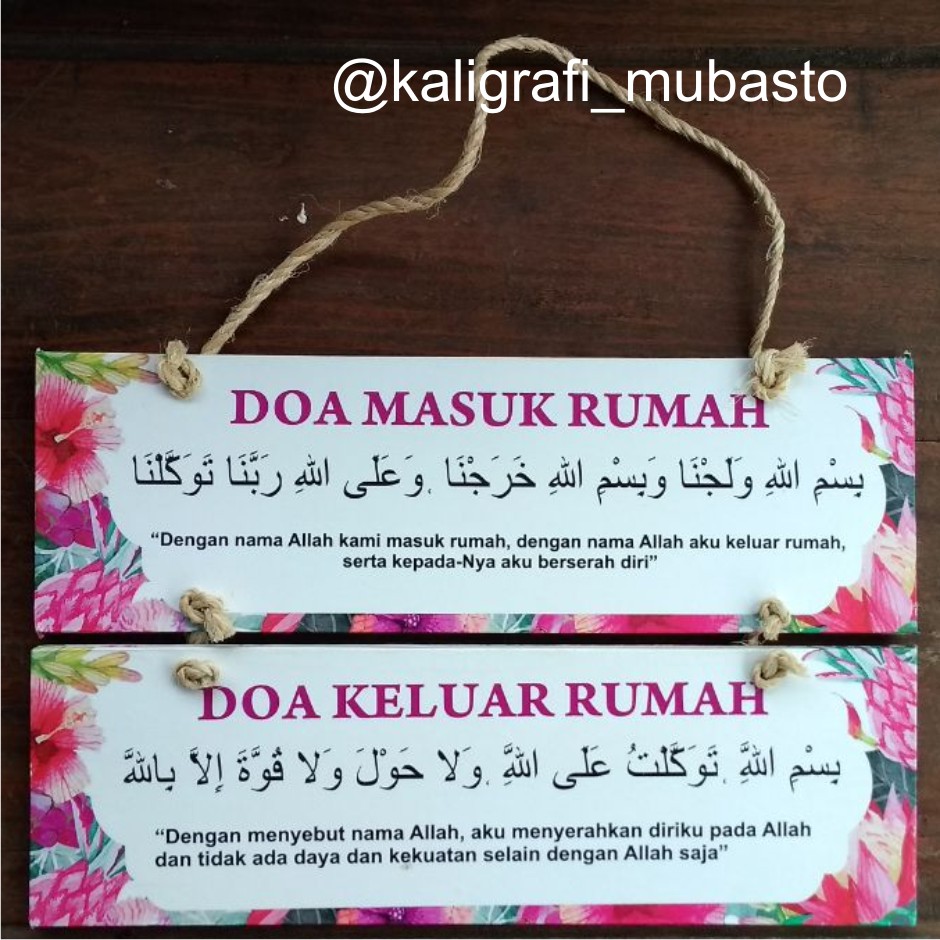 @kaligrafi_mubasto
DOA MASUK RUMAH
بِسْمِ اللهِ وَلَجْنَا وَبِسْمِ اللهِ خَرَجْنَا ,وَعَلَى اللهِ رَبَّنَا تَوَكَّلْنَا
“Dengan nama Allah kami masuk rumah, dengan nama Allah aku keluar rumah,
serta kepada-Nya aku berserah diri”
DOA KELUAR RUMAH
بِسْمِ اللهَّ ,تَوَكَّلْتُ عَلَى اللهَّ ,وَلا حَوْلَ وَلا قُوَّةَ إِلاَّ بِاللهَّ
“Dengan menyebut nama Allah, aku menyerahkan diriku pada Allah
dan tidak ada daya dan kekuatan selain dengan Allah saja”